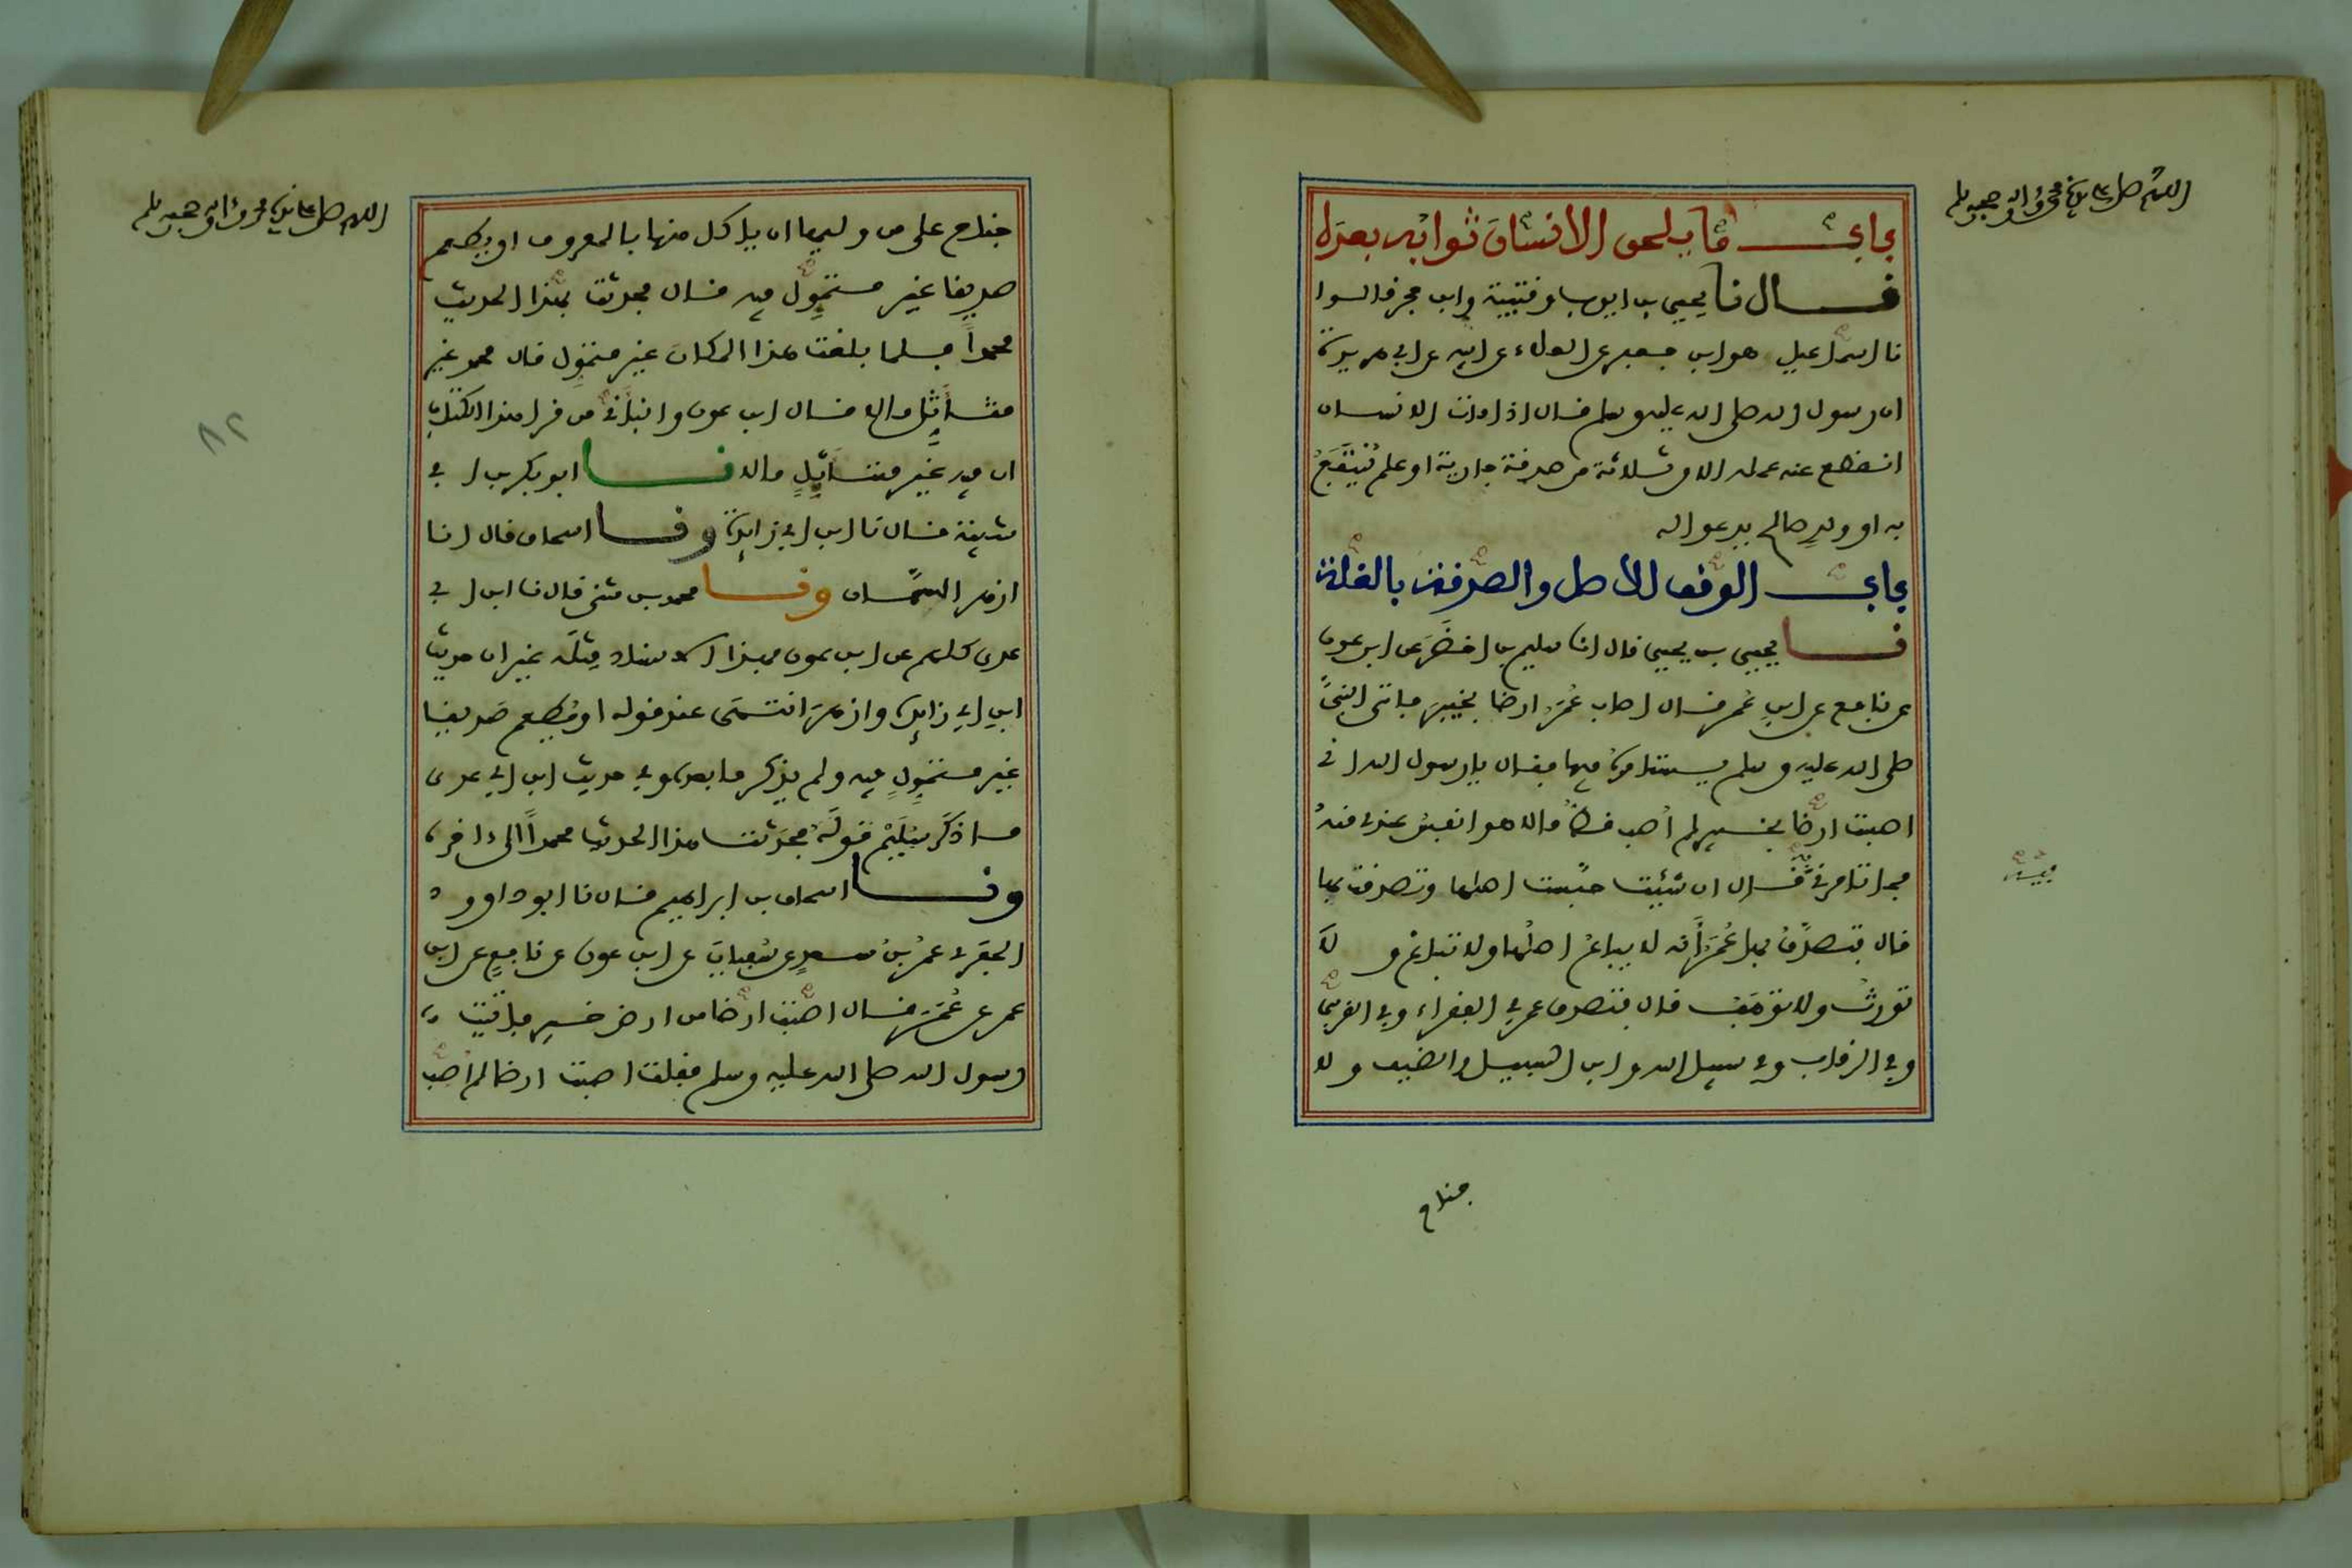 اللهم صل على سيدنا محمد وآله وصحبه وسلم
باب ما يلحق الانسان ثوابه بعده
قال نا يحيى بن ايوب وقتيبة وابن حجر قالوا
نا اسماعيل هو ابن جعفر عن العلاء عن ابيه عن ابي هريرة
ان رسول الله صلى الله عليه وسلم قال اذا مات الانسان
انقطع عنه عمله الا من ثلاثة من صدقة جارية او علم يُنتفَعُ
به او ولدٍ صالح يدعو له
باب الوقف الاصل والصدقة بالغلة
نا يحيى بن يحيى قال انا سليم بن اخضَرَ عن ابن عون
عن نافع عن ابن عُمر قال اصاب عُمَرُ ارضا بخيبَرَ فاتى النبيَّ
صلى الله عليه وسلم يستامره فيها فقال يا رسول الله اني
اصبت ارضا بخيبر لم اُصب قطُّ مالا هو انفسُ عندي منهُ
فما تامرني قال ان شئت حبَّست اصلها وتصدقت بها
قال فتصدَّقَ بها عُمَرُ أنه لا يباعُ اصلُها ولا تبتاع ولا
تورثُ ولا توهَب قال فتصدق عمر في الفقراء وفي القربى
وفي الرقاب وفي سبيل الله وابن السبيل والضيف ولا
جناح
اللهم صل على سيدنا محمد وآله وصحبه وسلم
جناح على من وليها ان ياكل منها بالمعروف او يطعم
صديقا غير متموِّل فيه قال فحدثت بهذا الحديث
محمداً فلما بلغت هذا المكان غير متموِّل قال محمد غير
متأثِّل مالا قال ابن عون وانبأني من قرا هذا الكتاب
ان فيه غير متأثِّلٍ مالا نا ابو بكر بن ابي
شيبة قال نا ابن ابي زايدة ونا اسحاق قال انا
ازهر السمَّان ونا محمد بن مثنى قال نا ابن ابي
عدي كلهم عن ابن عون بهذا الاسناد مِثلَه غير ان حديث
ابن ابي زايدة وازهَرَ انتهى عند قوله او يُطعم صديقا
غير متموِّلٍ فيه ولم يذكر ما بعده وفي حديث ابن ابي عدي
ما ذكَرَ سُلَيْم قولَهُ فحدَّثت هذا الحديث محمداً الى اخره
ونا اسحاق بن ابراهيم قال نا ابو داوود
الحفَري عمرُ بنُ سعدٍ عن سُفيانَ عن ابن عون عن نافعٍ عن ابن
عمر عن عُمَرَ قال اصبت ارضا من ارض خيبر فاتيت
رسول الله صلى الله عليه وسلم فقلت اصبت ارضا لم اُصب
٨٢